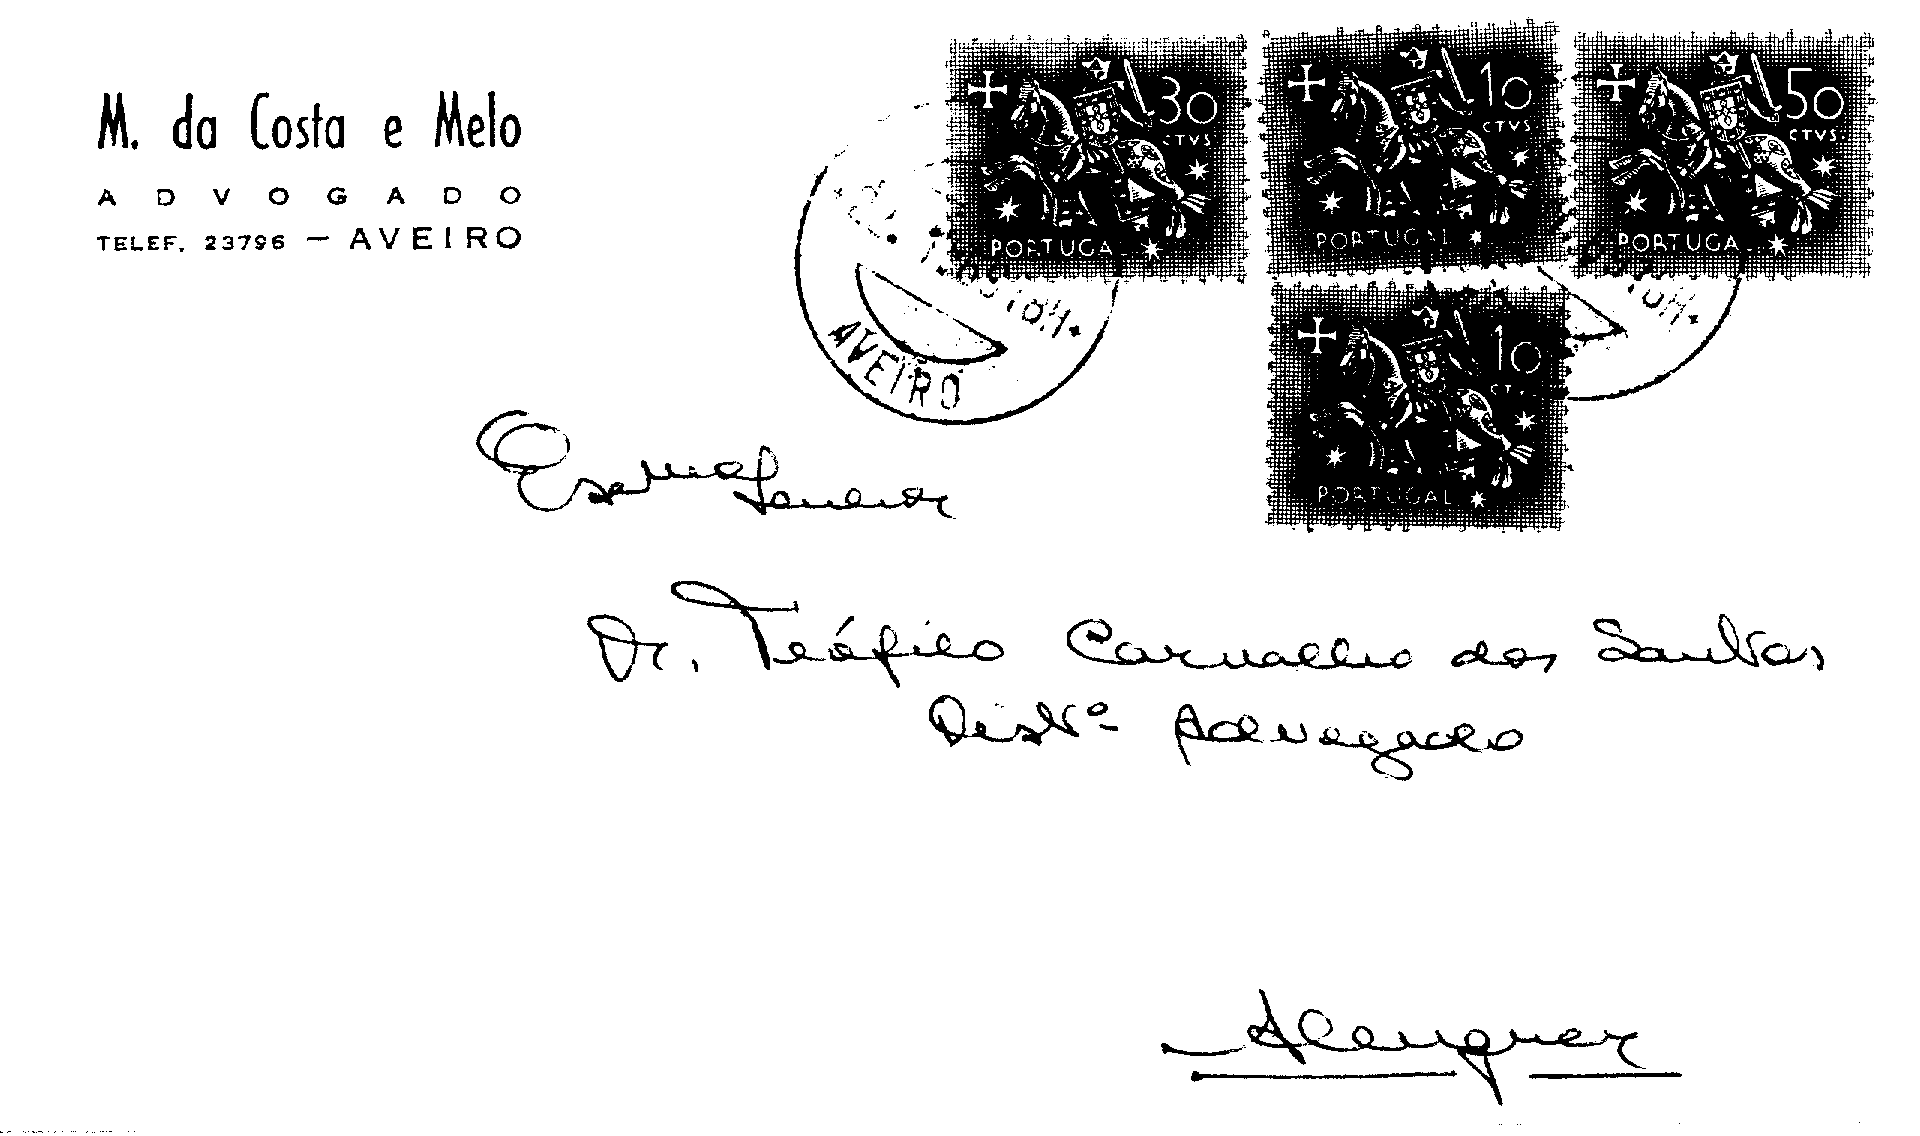 M. da Costa e Melo
ADVOGADO
TELEF. 23796 — AVEIRO
30 CTVS.
PORTUGAL
10 CTVS.
PORTUGAL
50 CTVS.
PORTUGAL
10 CTVS.
PORTUGAL
18H.
AVEIRO
18H.
Senhor
Dr. Teófilo Carvalho dos Santos
Distº Advogado
Alenquer